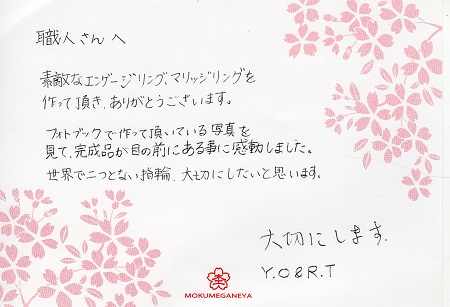 職人さんへ
素敵なエンゲージリング、マリッジリングを
作って頂き、ありがとうございます。
フォトブックで作って頂いている写真を
見て、完成品が目の前にある事に感動しました。
世界で二つとない指輪、大切にしたいと思います。
大切にします。
Y.O & R.T
MOKUMEGANEYA